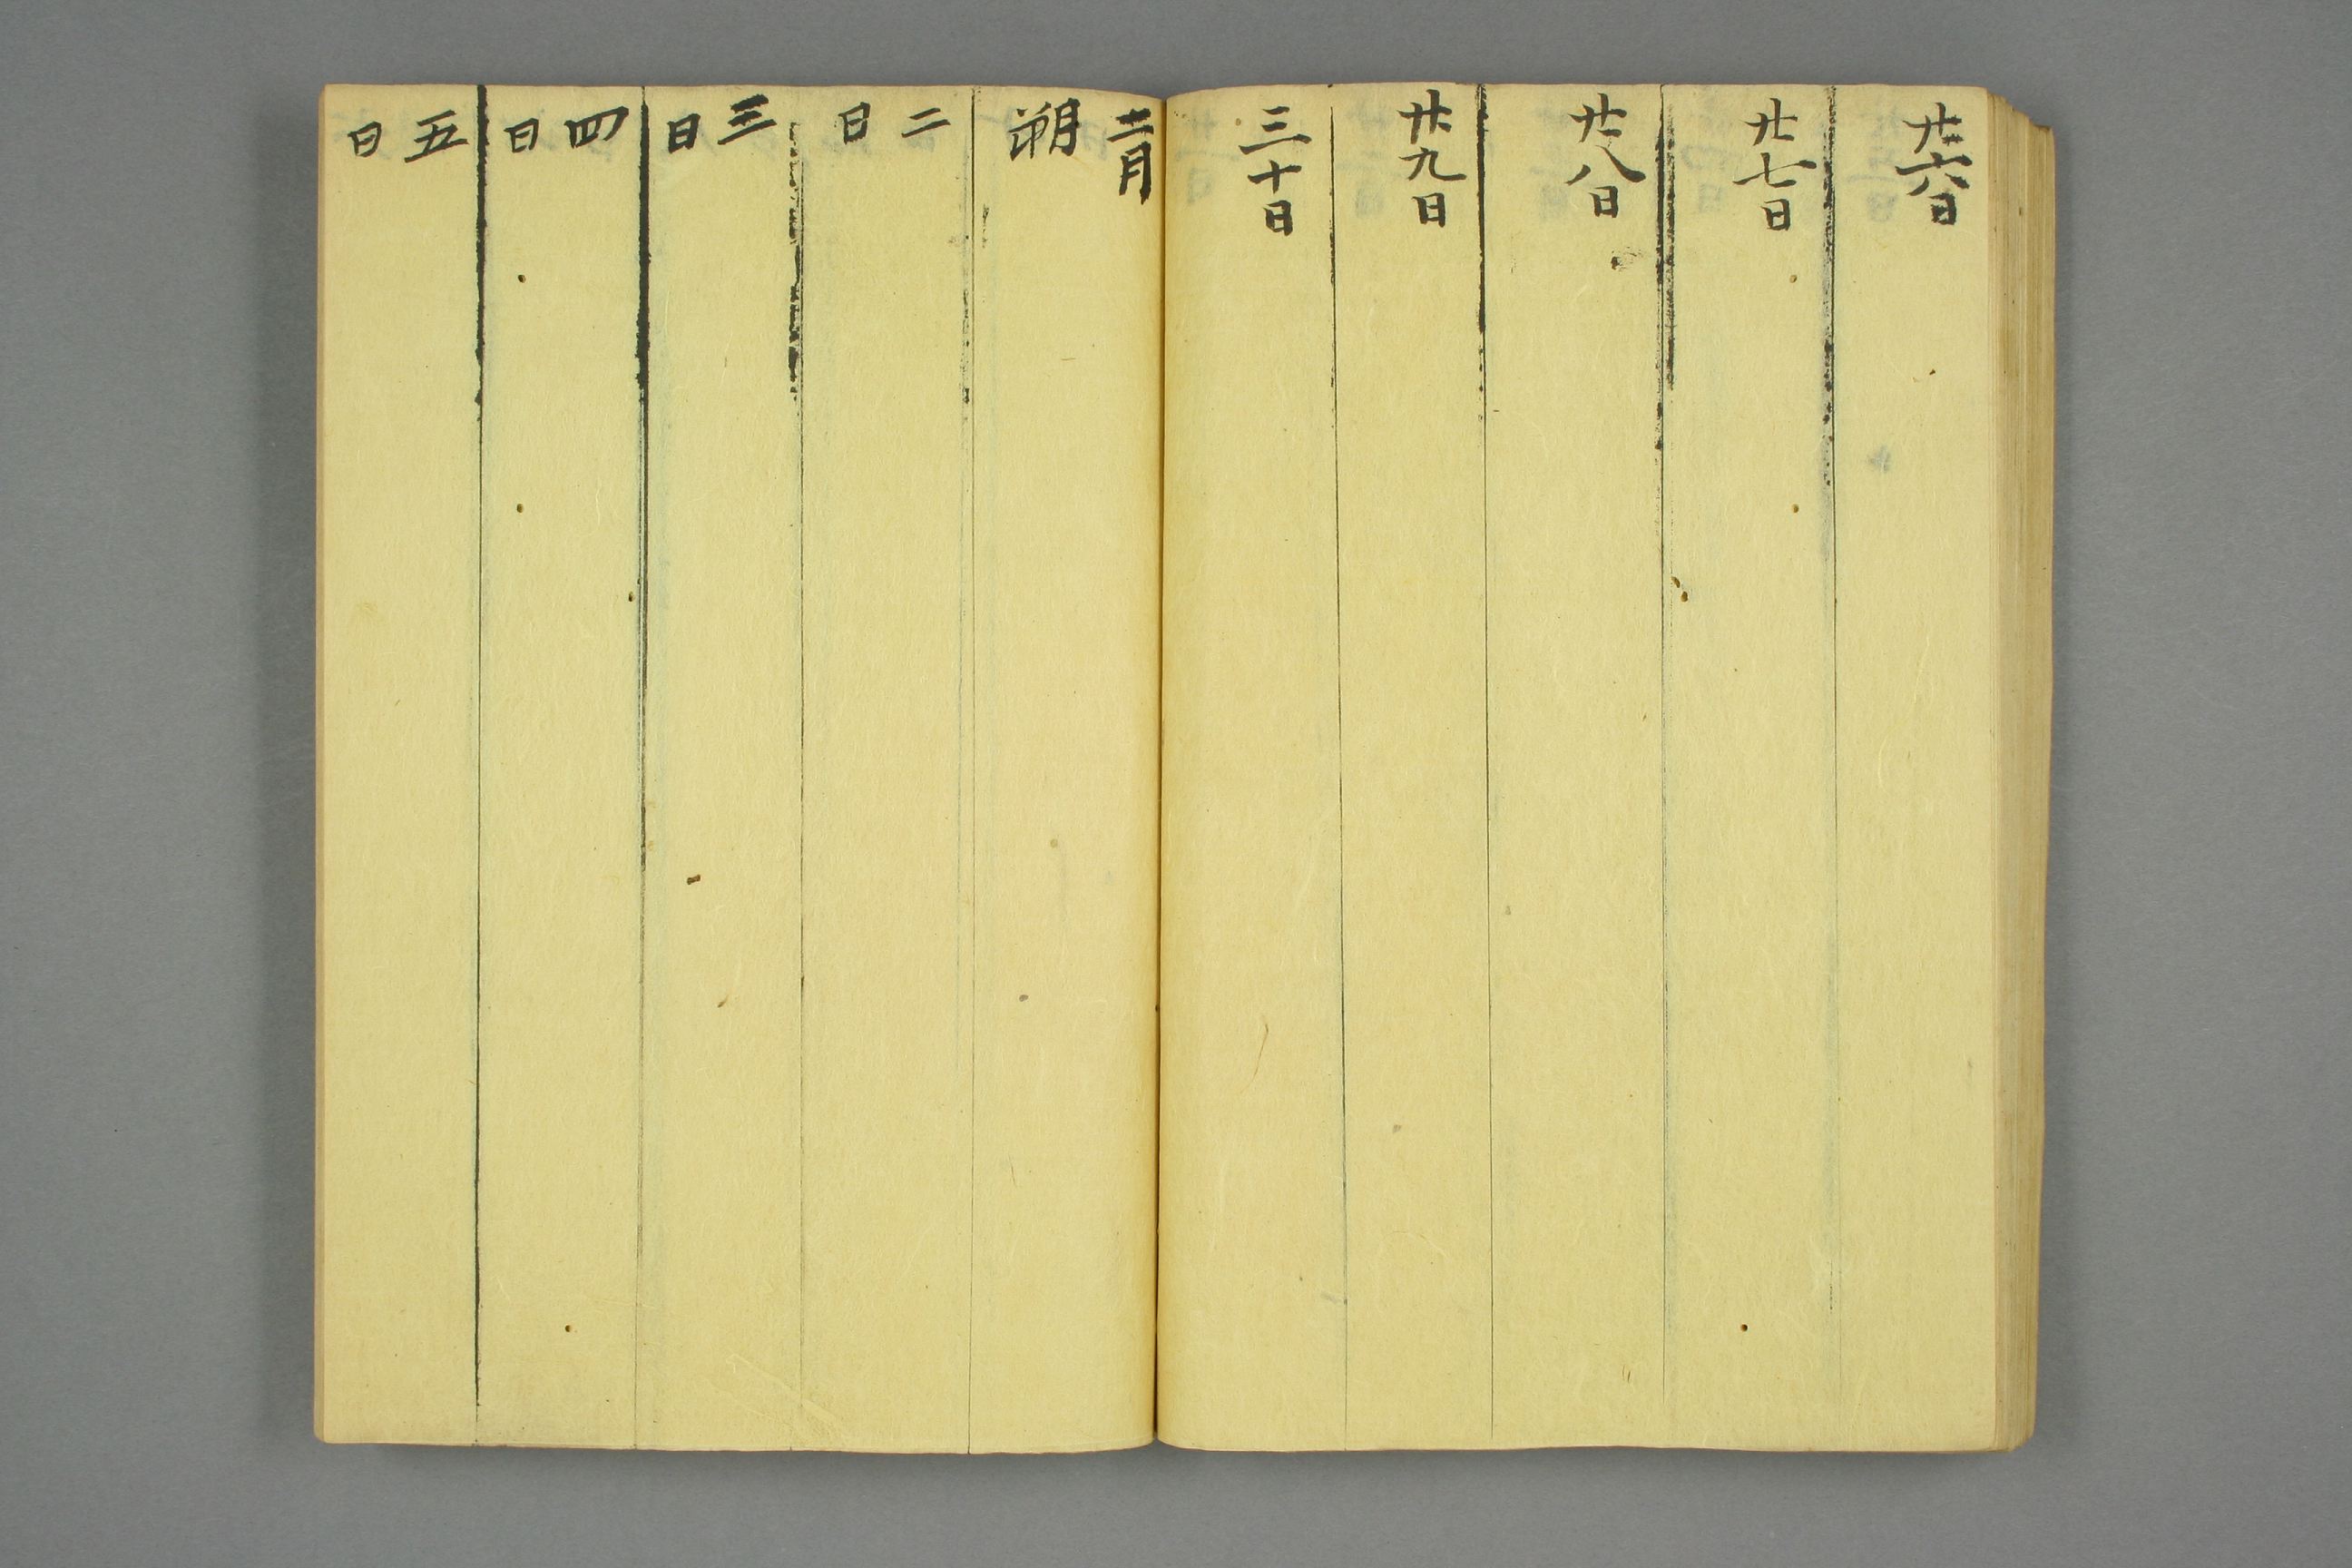 廿六日
廿七日
廿八日
廿九日
三十日
十二月
朔
二日
三日
四日
五日